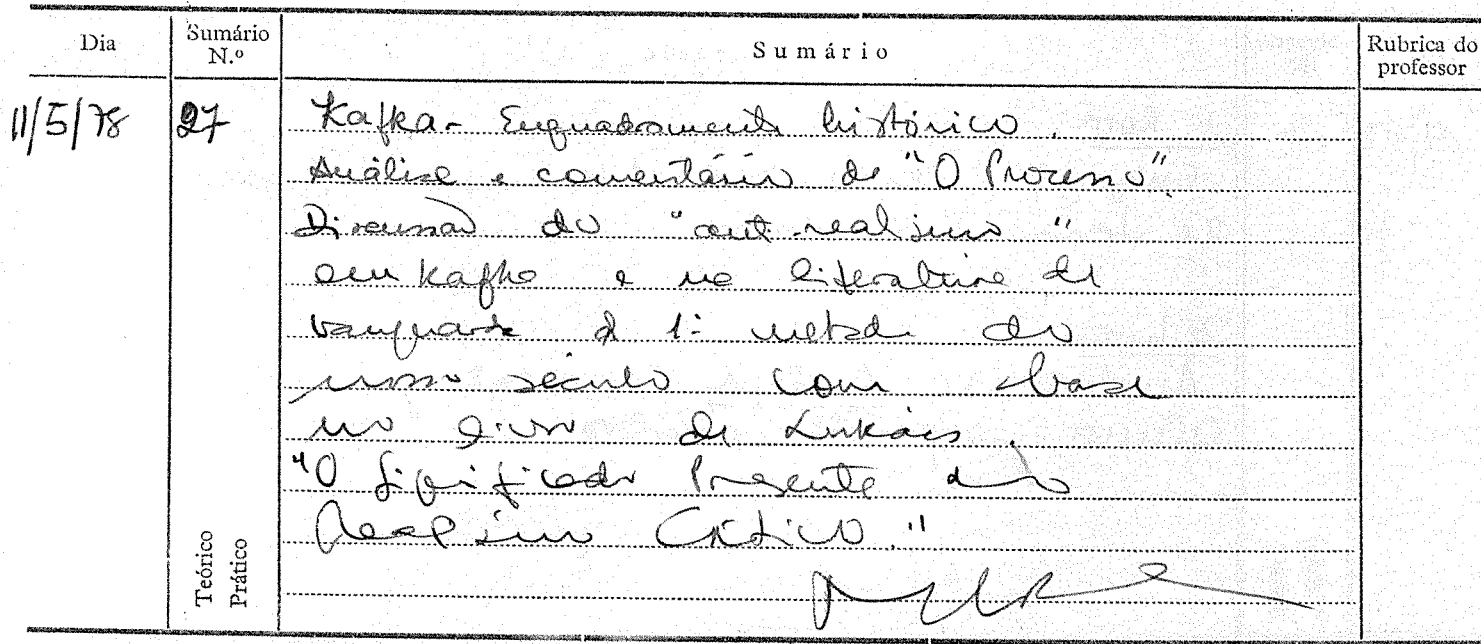 Dia
Sumário N.º
Sumário
Rubrica do professor
11/5/78
27
Kafka - Enquadramento histórico.
Análise e comentário de "O Processo".
Discussão do "anti-realismo"
em Kafka e na literatura de
vanguarda da 1ª metade do
nosso século com base
no livro de Lukács.
"O Significado Presente do
Realismo Crítico."
Teórico
Prático